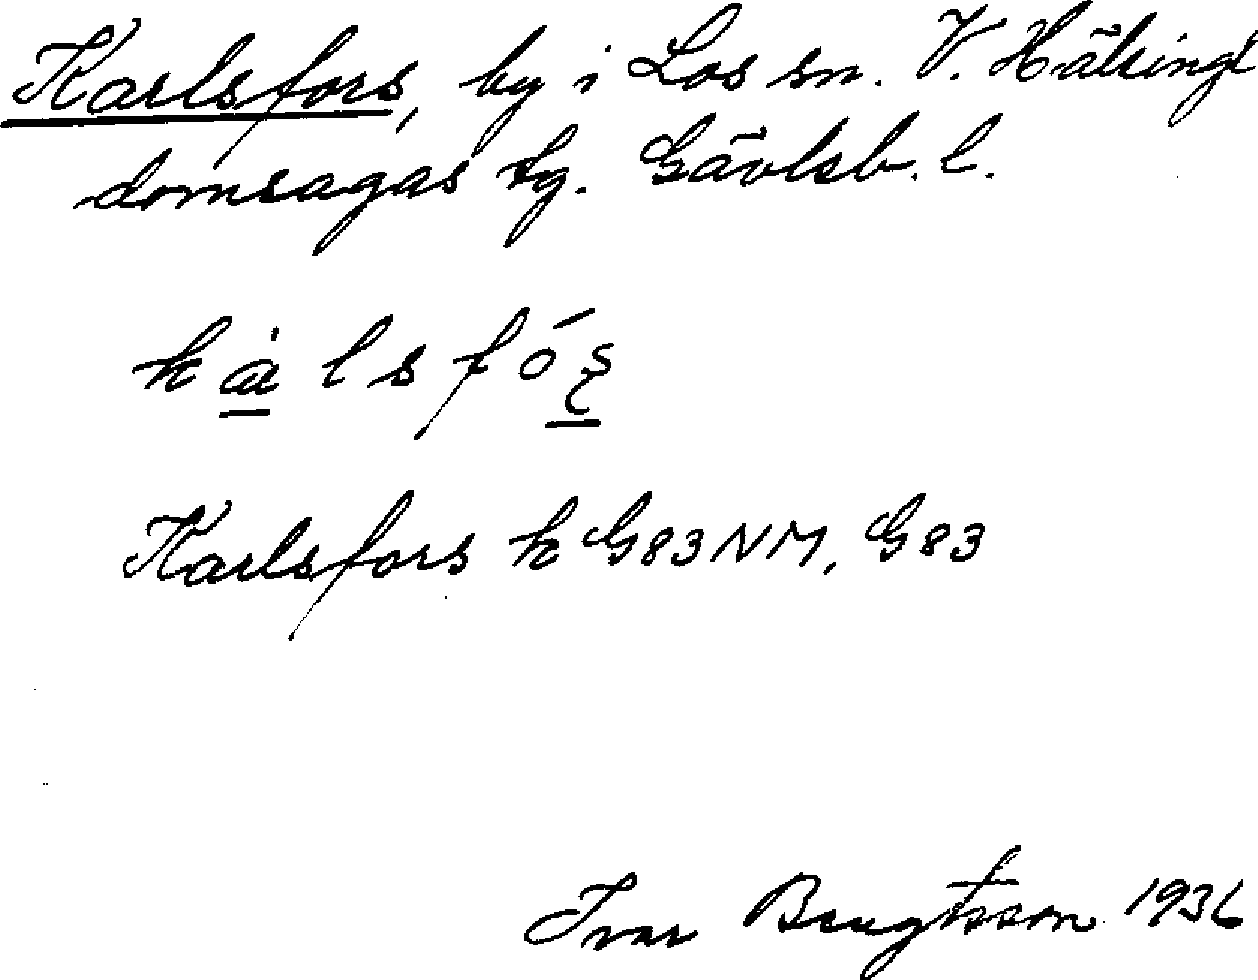 Karlsfors, by i Los sn. V. Hälsingl.
domsagas tg. Gävleb. l.
kàlsfóș
Karlsfors k G83NM, G83
Ivar Bengtsson 1936